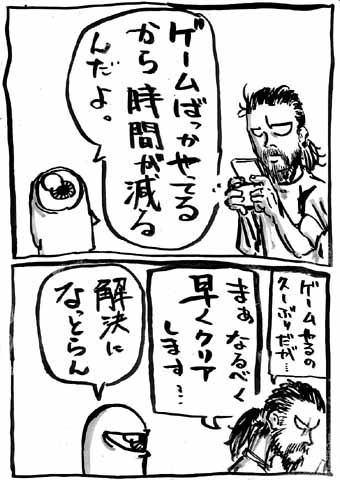 ゲームばっかやてる
から時間が減る
んだよ。
ゲームやるの
久ーぶりだが…
まぁなるべく
早くクリア
します…
解決に
なっとらん